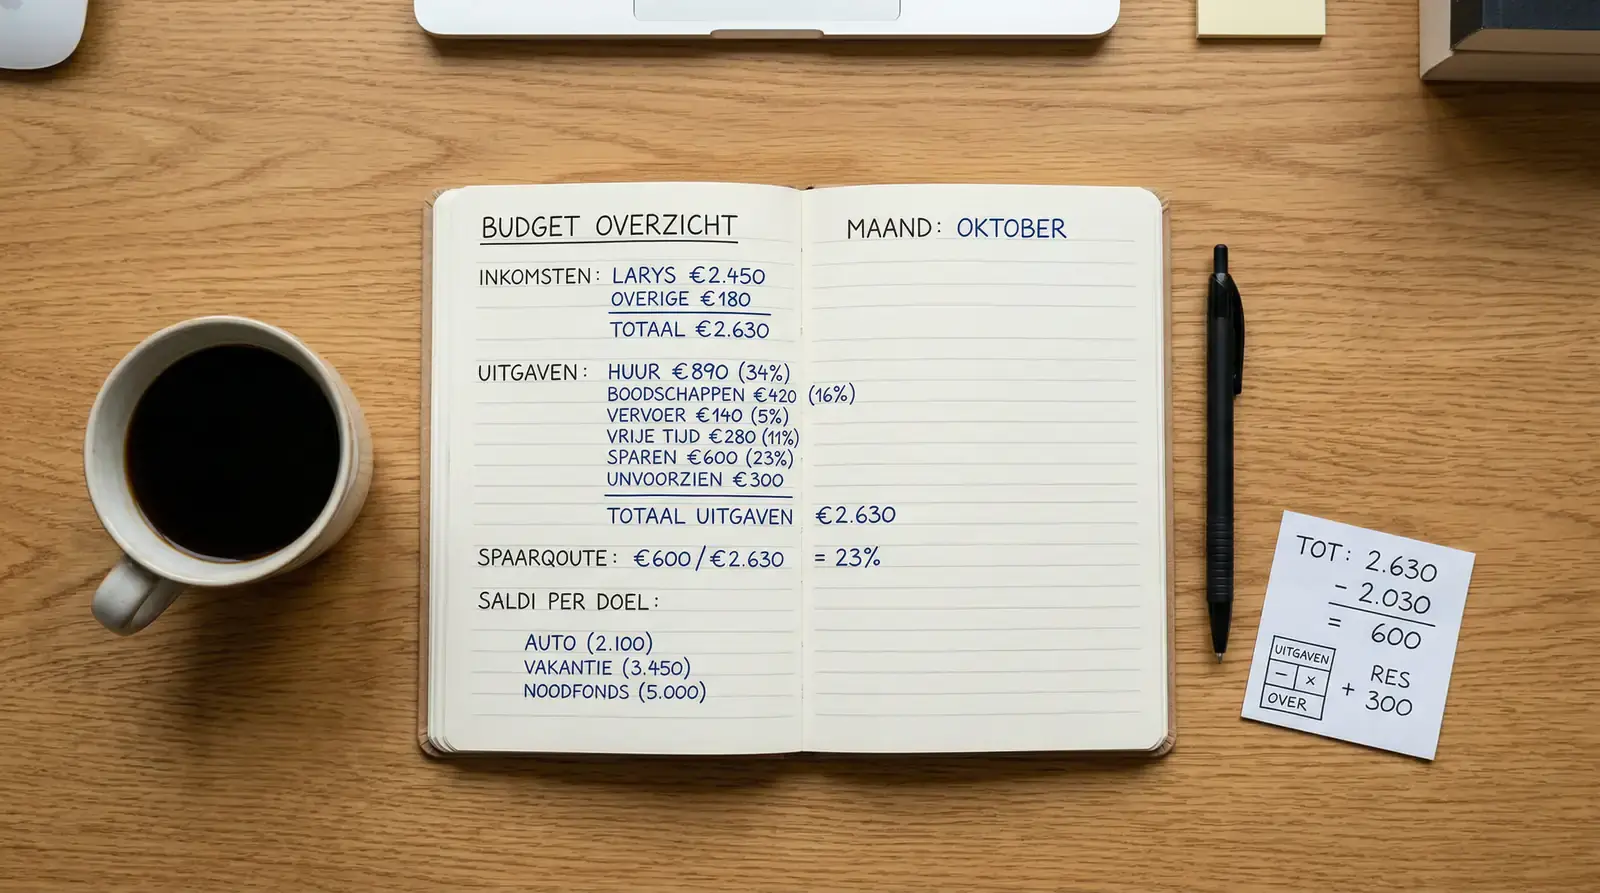 BUDGET OVERZICHT
INKOMSTEN: LARYS €2.450
OVERIGE €180
TOTAAL €2.630
UITGAVEN: HUUR €890 (34%)
BOODSCHAPPEN €420 (16%)
VERVOER €140 (5%)
VRIJE TIJD €280 (11%)
SPAREN €600 (23%)
UNVOORZIEN €300
TOTAAL UITGAVEN €2.630
SPAARQOUTE: €600/€2.630 = 23%
SALDI PER DOEL:
AUTO (2.100)
VAKANTIE (3.450)
NOODFONDS (5.000)
MAAND: OKTOBER
TOT: 2.630
- 2.030
= 600
UITGAVEN
- x
OVER
RES
+ 300